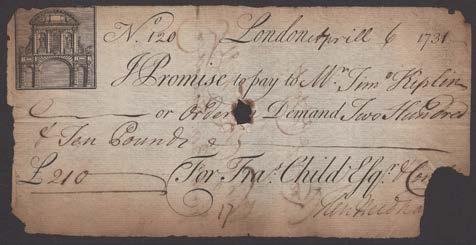 N.º 120 London Aprill 6 1731
I Promise to pay to Mr. Timo Kiplin
or Order on Demand Two Hundred
& Ten Pounds
£210 For Fras. Child Esqr. &
17